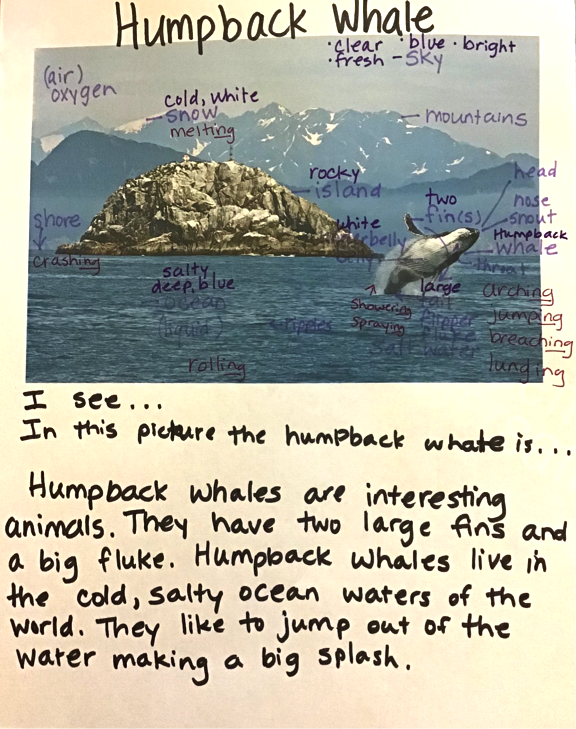 Humpback Whale
• clear • blue • bright
• fresh - sky
(air)
oxygen
cold, white
snow
melting
mountains
rocky
island
head
two
fin(s)
nose
snout
shore
white
Humpback
whale
underbelly
throat
crashing
salty
deep, blue
ocean
large
arching
showering
jumping
(liquid)
flipper
spraying
ripples
fluke
breaching
salt water
rolling
lunging
I see...
In this picture the humpback whale is...
Humpback whales are interesting
animals. They have two large fins and
a big fluke. Humpback whales live in
the cold, salty ocean waters of the
world. They like to jump out of the
water making a big splash.